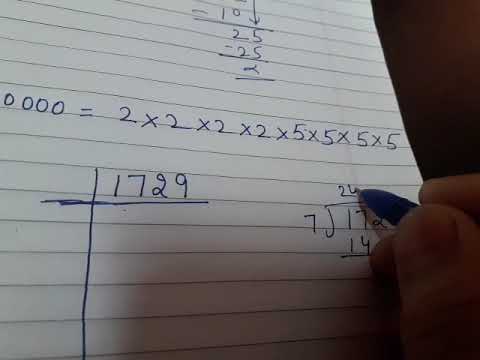 - 10↓
25
-25
0000 = 2×2×2×2×5×5×5×5
1729
24
7)172
14